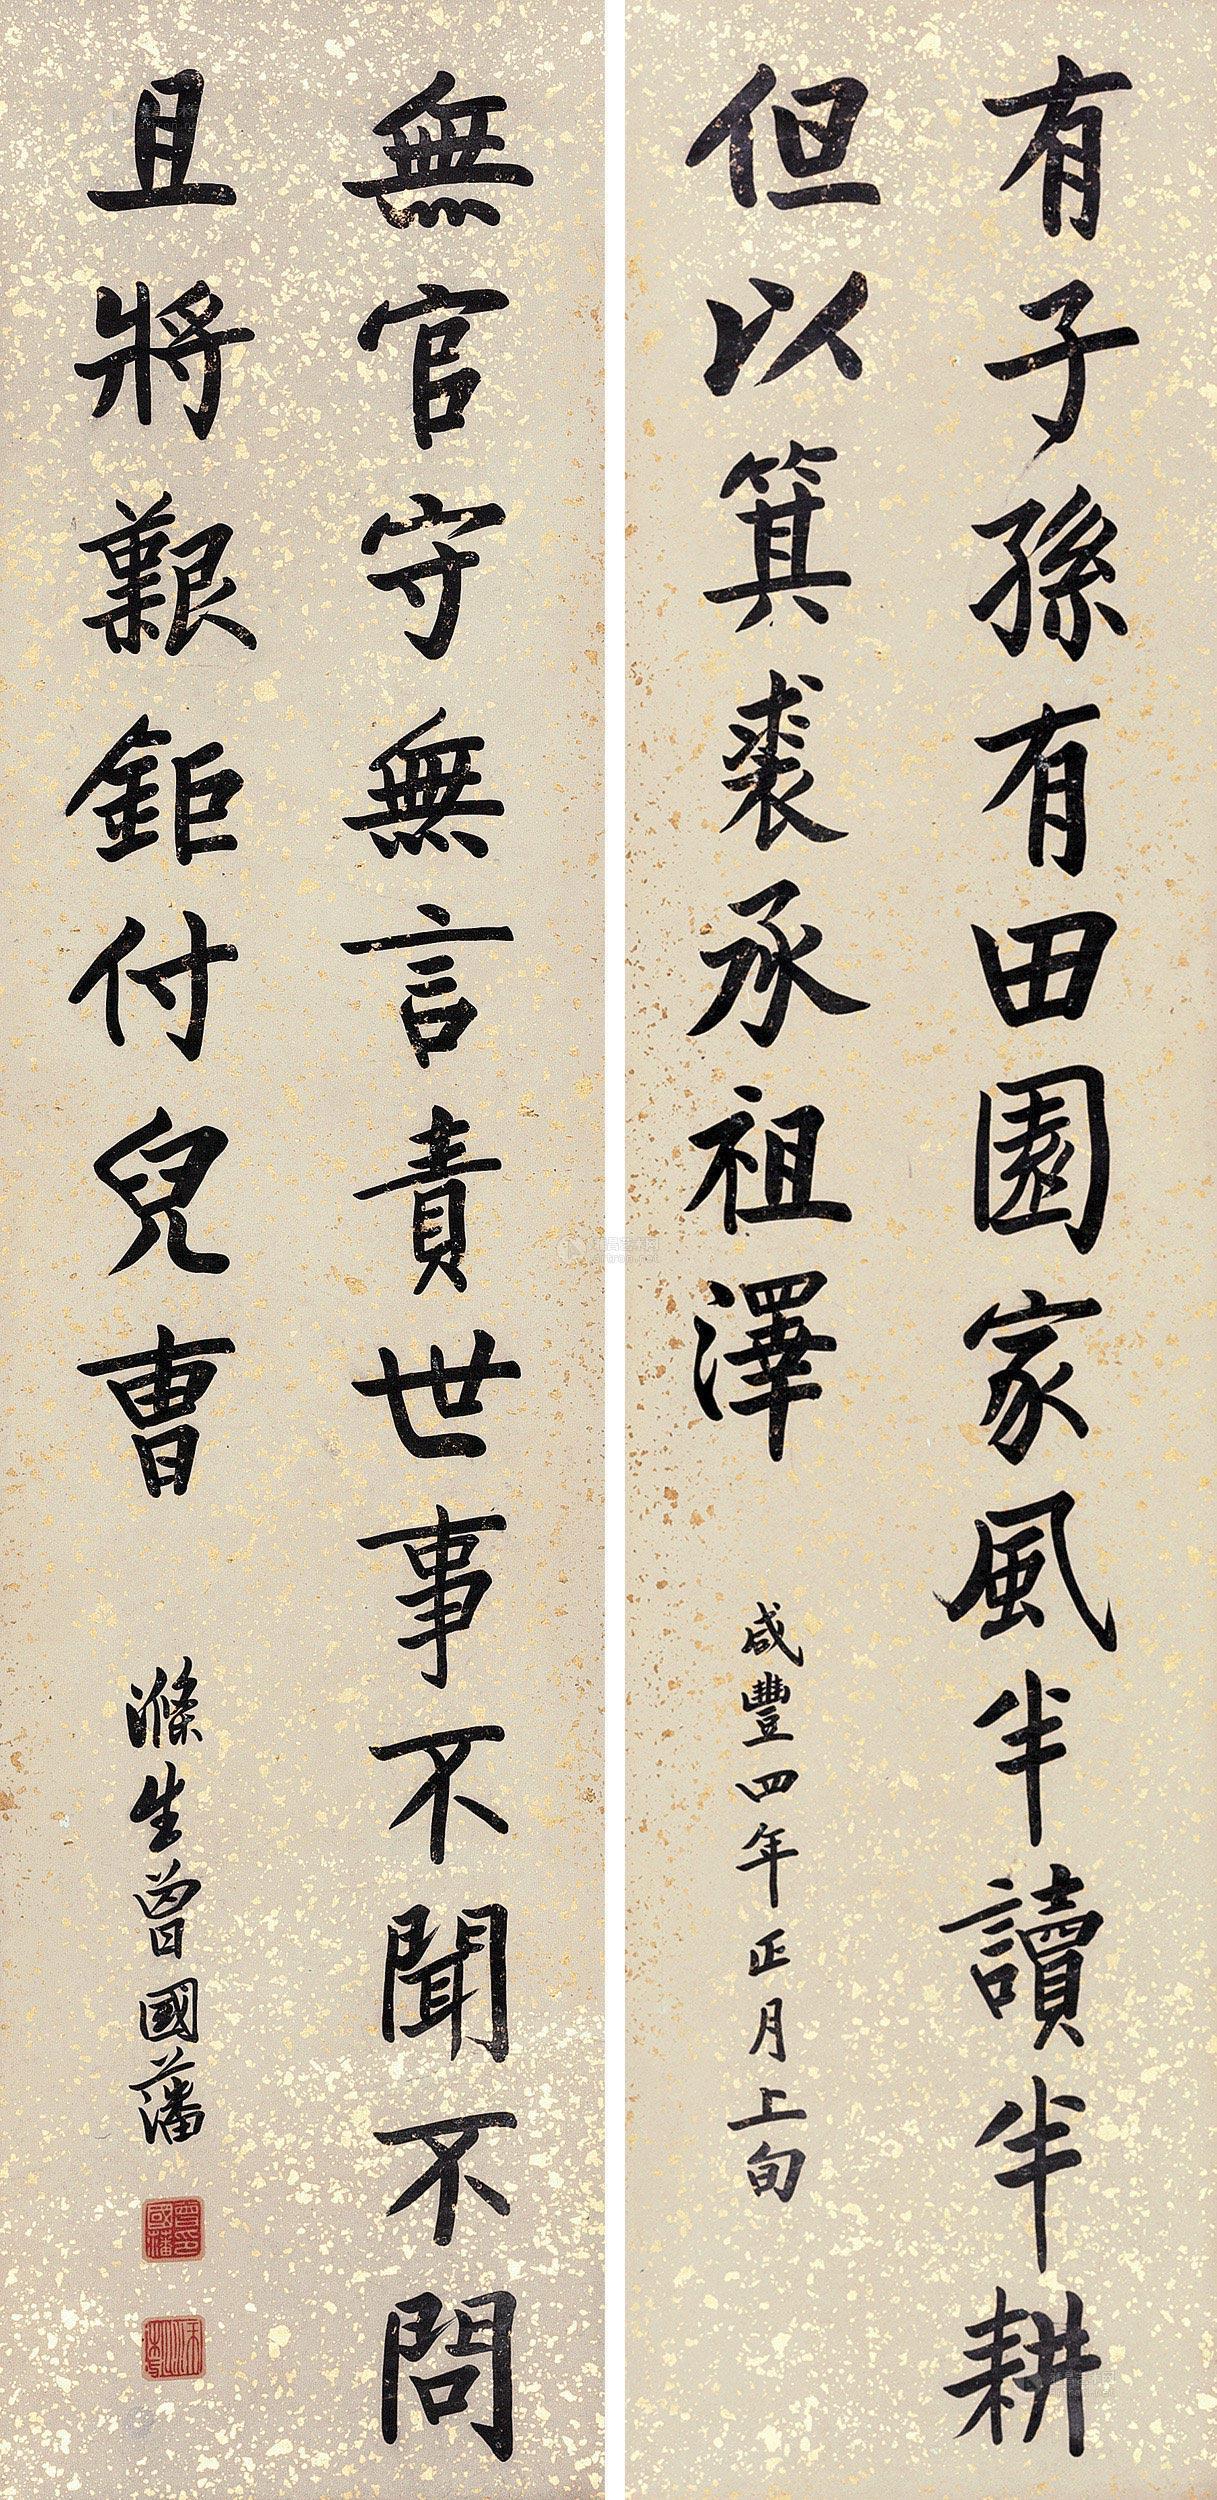 有子孫有田園家風半讀半耕
但以箕裘承祖澤
咸豐四年正月上旬
無官守無言責世事不聞不問
且將艱鉅付兒曹
滌生曾國藩
曾國藩印